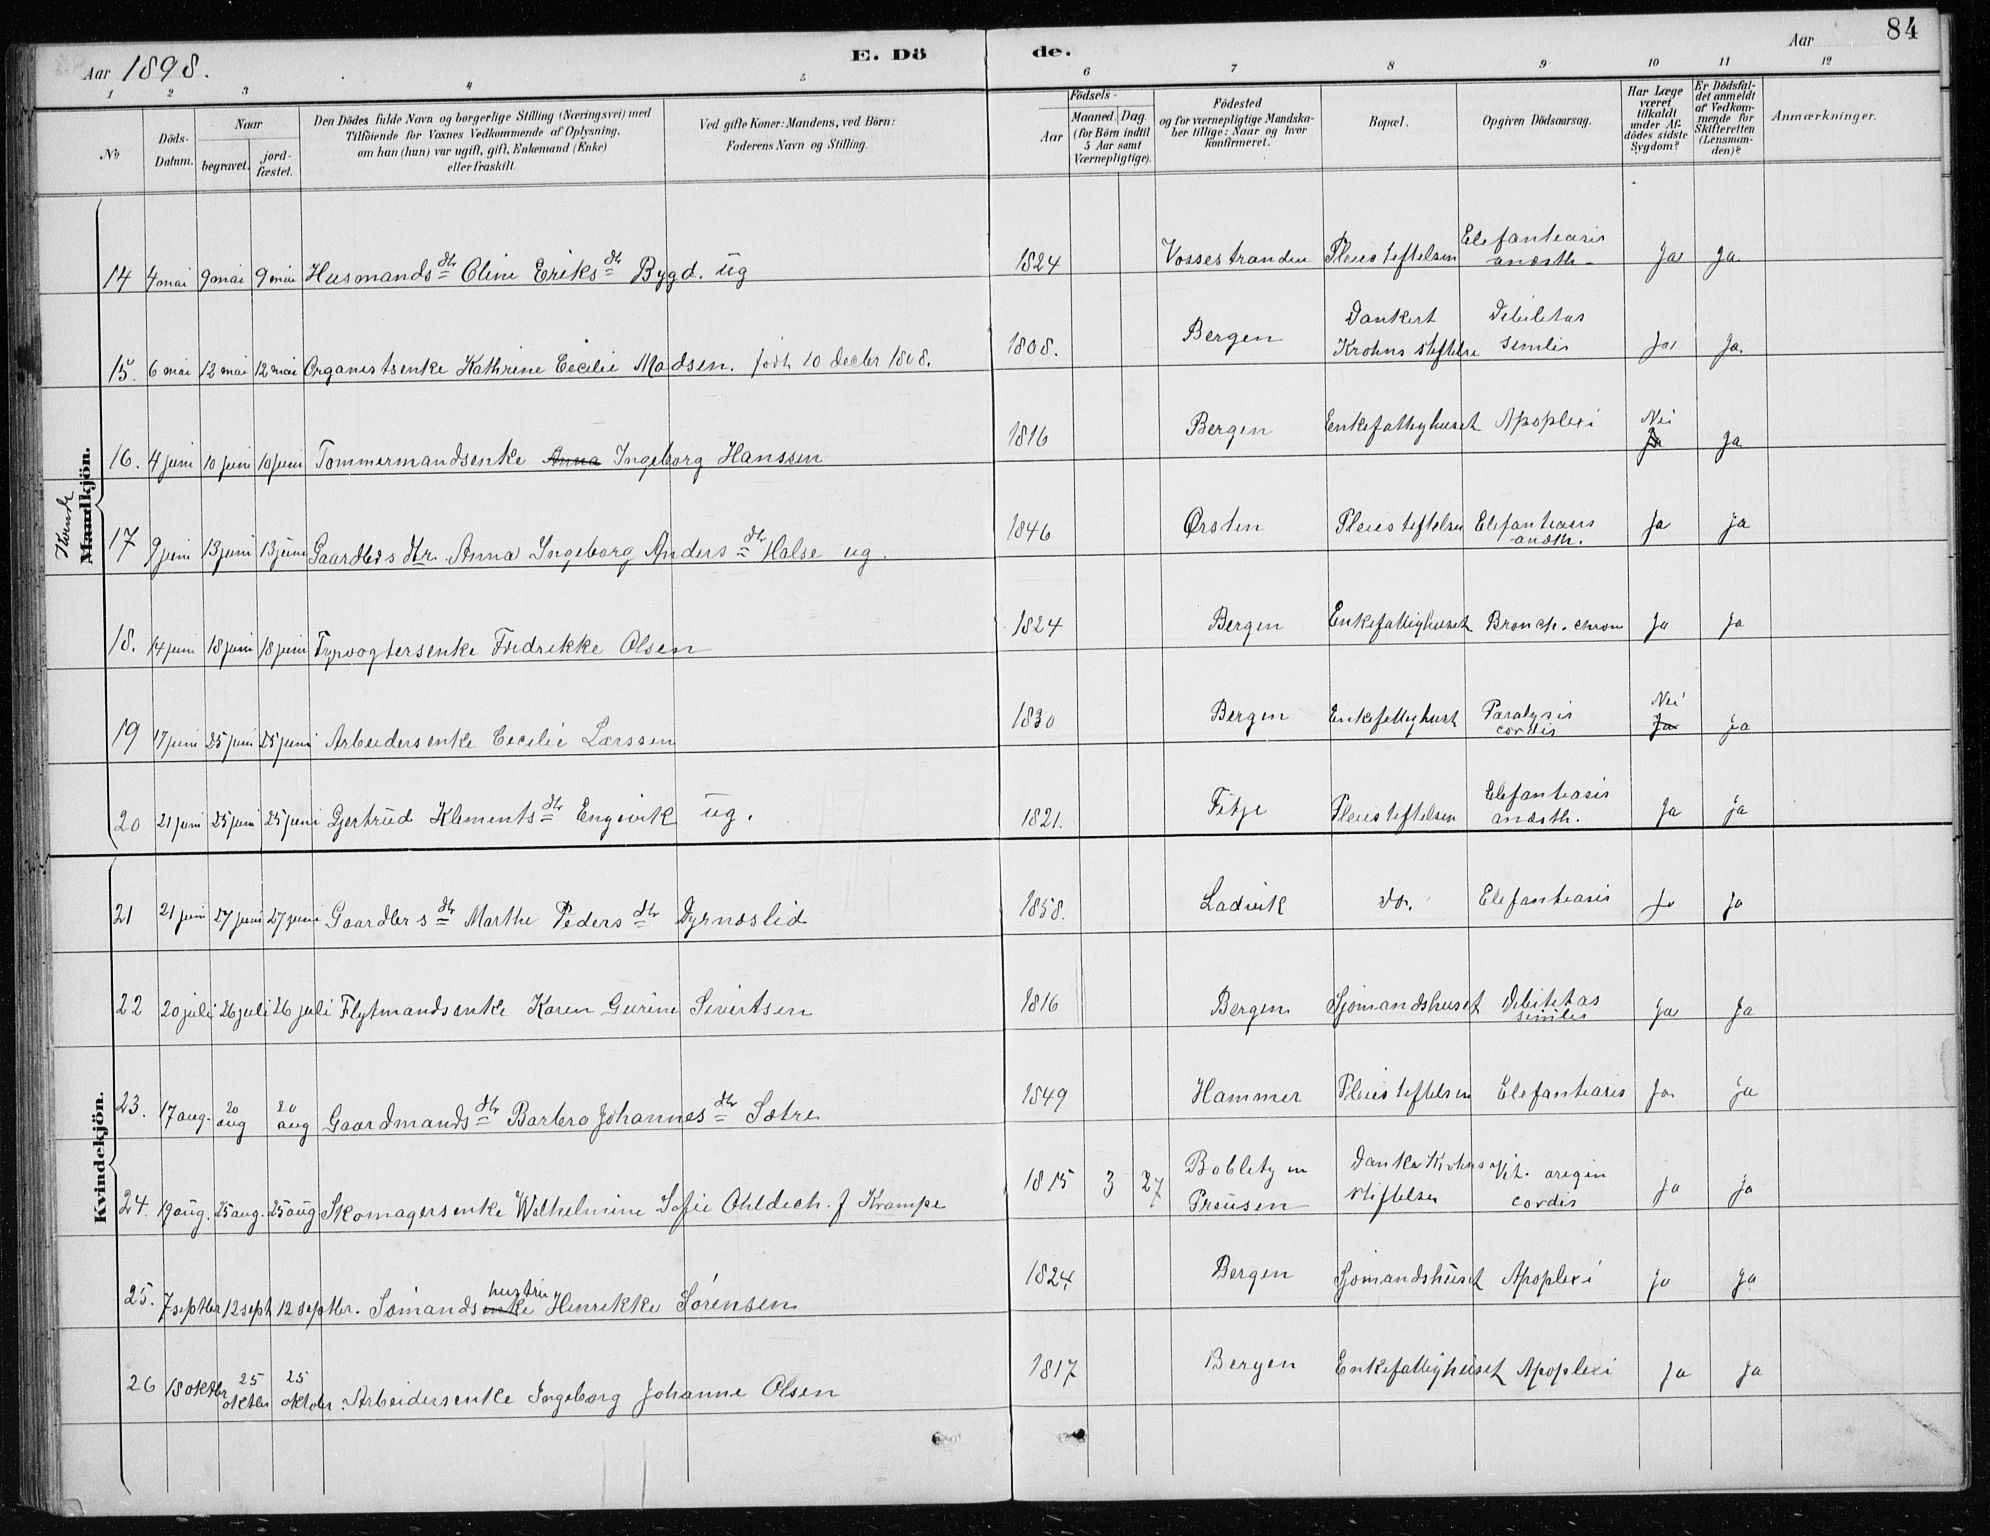 84
Aar 1898. E. Dö de. Aar
1 2 3 4 5 6 7 8 9 10 11 12
№ Döds-Datum. Naar begravet. jord-fæstet. Den Dödes fulde Navn og borgerlige Stilling (Næringsvei) med Tilföiende for Voxnes Vedkommende af Oplysning, om han (hun) var ugift, gift, Enkemand (Enke) eller fraskilt. Ved gifte Koner: Mandens, ved Börn: Faderens Navn og Stilling. Födsels- Aar Maaned. Dag. (for Börn indtil 5 Aar samt Værnepligtige). Födested og for værnepligtige Mandskaber tillige: Naar og hvor konfirmeret. Bopæl. Opgiven Dödsaarsag. Har Læge været tilkaldt under Afdödes sidste Sygdom? Er Dödsfaldet anmeldt af Vedkommende for Skifteretten (Lensmanden)? Anmærkninger.
Kvinde
Mandkjön.
14 4 mai 9 mai 9 mai Husmandsdtr Oline Eriksdtr Bygd. ug 1824 Vossestranden Pleiestiftelsen Elefantiasis anæsth. Ja Ja
15. 6 mai 12 mai 12 mai Organistsenke Kathrine Cecilie Madsen. født 10 decbr 1808. 1808. Bergen Dankert Krohns stiftelse Debilitas senilis Ja Ja.
16. 4 juni 10 juni 10 juni Tømmermandsenke Anna Ingeborg Hanssen 1816 Bergen Enkefattighuset Apoplexi Nei Ja Ja
17 9 juni 13 juni 13 juni Gaardbrs dtr. Anna Ingeborg Andersdtr Halse ug. 1846 Ørsten Pleiestiftelsen Elefantiasis anæsth. Ja Ja
18. 14 juni 18 juni 18 juni Fyrvogtersenke Fredrikke Olsen 1824 Bergen Enkefattighuset Bronch. chron Ja Ja
19 17 juni 25 juni 25 juni Arbeidersenke Cecilie Larssen 1830 Bergen Enkefattighust Paralysis cordis Nei Ja Ja
20 21 juni 25 juni 25 juni Gjertrud Klementsdtr Engevik ug. 1821. Fitje Pleiestiftelsen Elefantiasis anæsth. Ja Ja
Kvindekjön.
21 21 juni 27 juni 27 juni Gaardbrsdtr Marthe Pedersdtr Dyrnæslid 1858. Ladvik do. Elefantiasis Ja Ja
22 20 juli 26 juli 26 juli Flytmandsenke Karen Gurine Sivertsen 1816 Bergen Sjømandshuset Debilitas senilis Ja Ja
23. 17 aug. 20 aug 20 aug Gaardmandsdtr Barbera Johannesdtr Sætre 1849 Hammer Pleiestiftelsen Elefantiasis Ja Ja
24. 19 aug. 25 aug. 25 aug Skomagersenke Wilhelmine Sofie Ohldieck. f Krampe 1815 3 27 Bobletz in Preusen Dankr Krohns stiftelse Vit. cordis Ja Ja
25. 7 septbr 12 sept 12 septbr. Sømandsenke hustru Henrikke Sørensen 1824 Bergen Sjømandshuset Apoplexi Ja Ja
26 18 oktbr 25 oktbr 25 oktober. Arbeidersenke Ingeborg Johanne Olsen 1817 Bergen Enkefattighuset Apoplexi Ja Ja